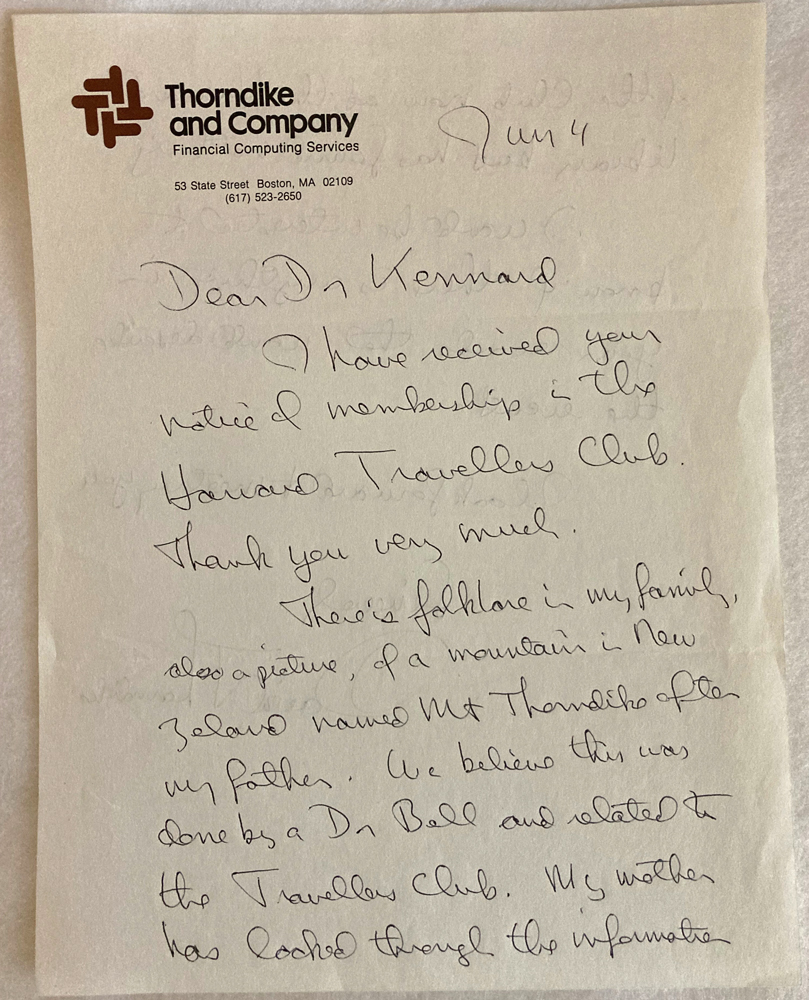 Thorndike
and Company
Financial Computing Services
53 State Street Boston, MA 02109
(617) 523-2650
Jun 4
Dear Dr Kennard
I have received your
notice of membership in the
Harvard Travellers Club.
Thank you very much.
There is folklore in my family,
also a picture, of a mountain in New
Zeland named Mt Thorndike after
my father. We believe this was
done by a Dr Bell and related to
the Travellers Club. My mother
has looked through the information